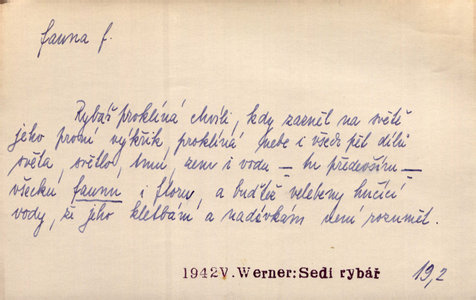 fauna f.
Rybář proklíná chvíli, kdy zazněl na světě
jeho první výkřik, proklíná nebe i všech pět dílů
světa, světlo, tmu, zem i vodu – tu především –
všecku faunu i floru, a buďtež velebeny hučící
vody, že jeho kletbám a nadávkám není rozumět.
1942 V. Werner: Šedi rybář
19,2